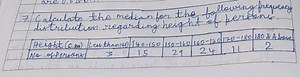 are 0.
7. Calculate the median for the following frequency
distribution regarding height of persons
Height (Cm) Less than 140 140-150 150-160 160-170 170-180 180 & Above
No of Persons 3 15 21 24 11 2